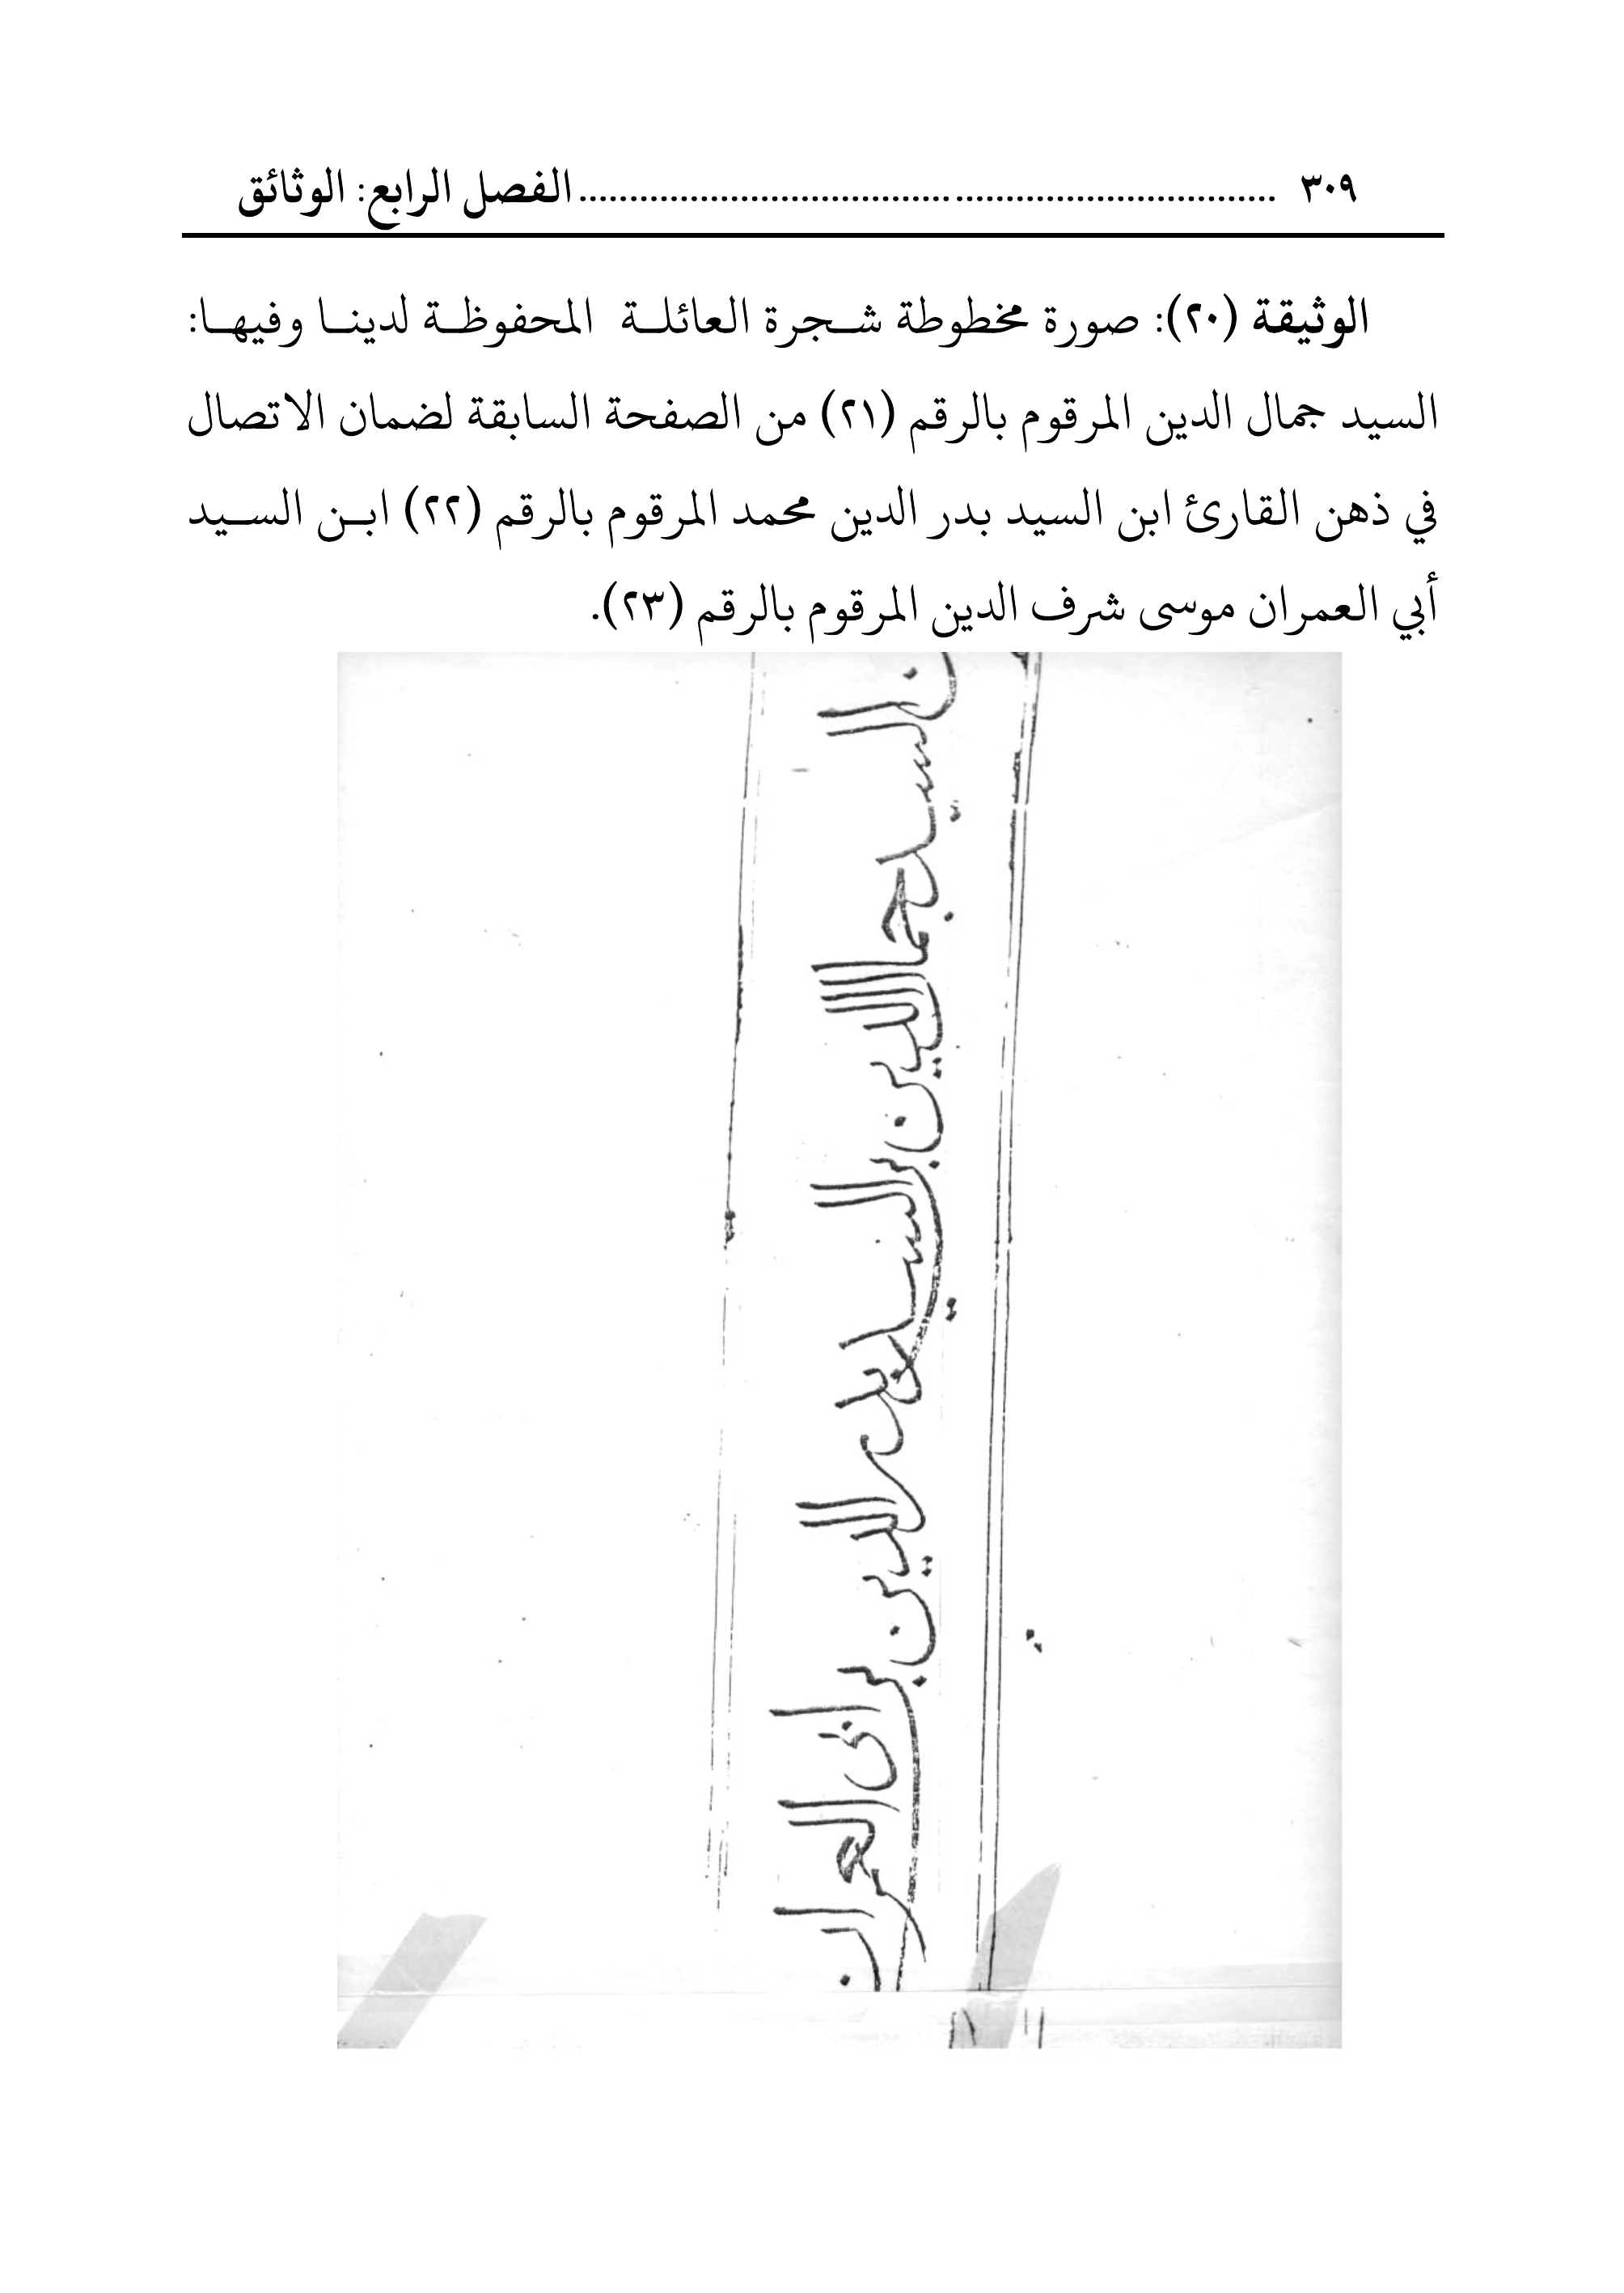 ٣٠٩ ......................................................................الفصل الرابع: الوثائق
الوثيقة (٢٠): صورة مخطوطة شجرة العائلة المحفوظة لدينا وفيها:
السيد جمال الدين المرقوم بالرقم (٢١) من الصفحة السابقة لضمان الاتصال
في ذهن القارئ ابن السيد بدر الدين محمد المرقوم بالرقم (٢٢) ابن السيد
أبي العمران موسى شرف الدين المرقوم بالرقم (٢٣).
بن السيد جمال الدين بن السيد بدر الدين بن ابى العمران